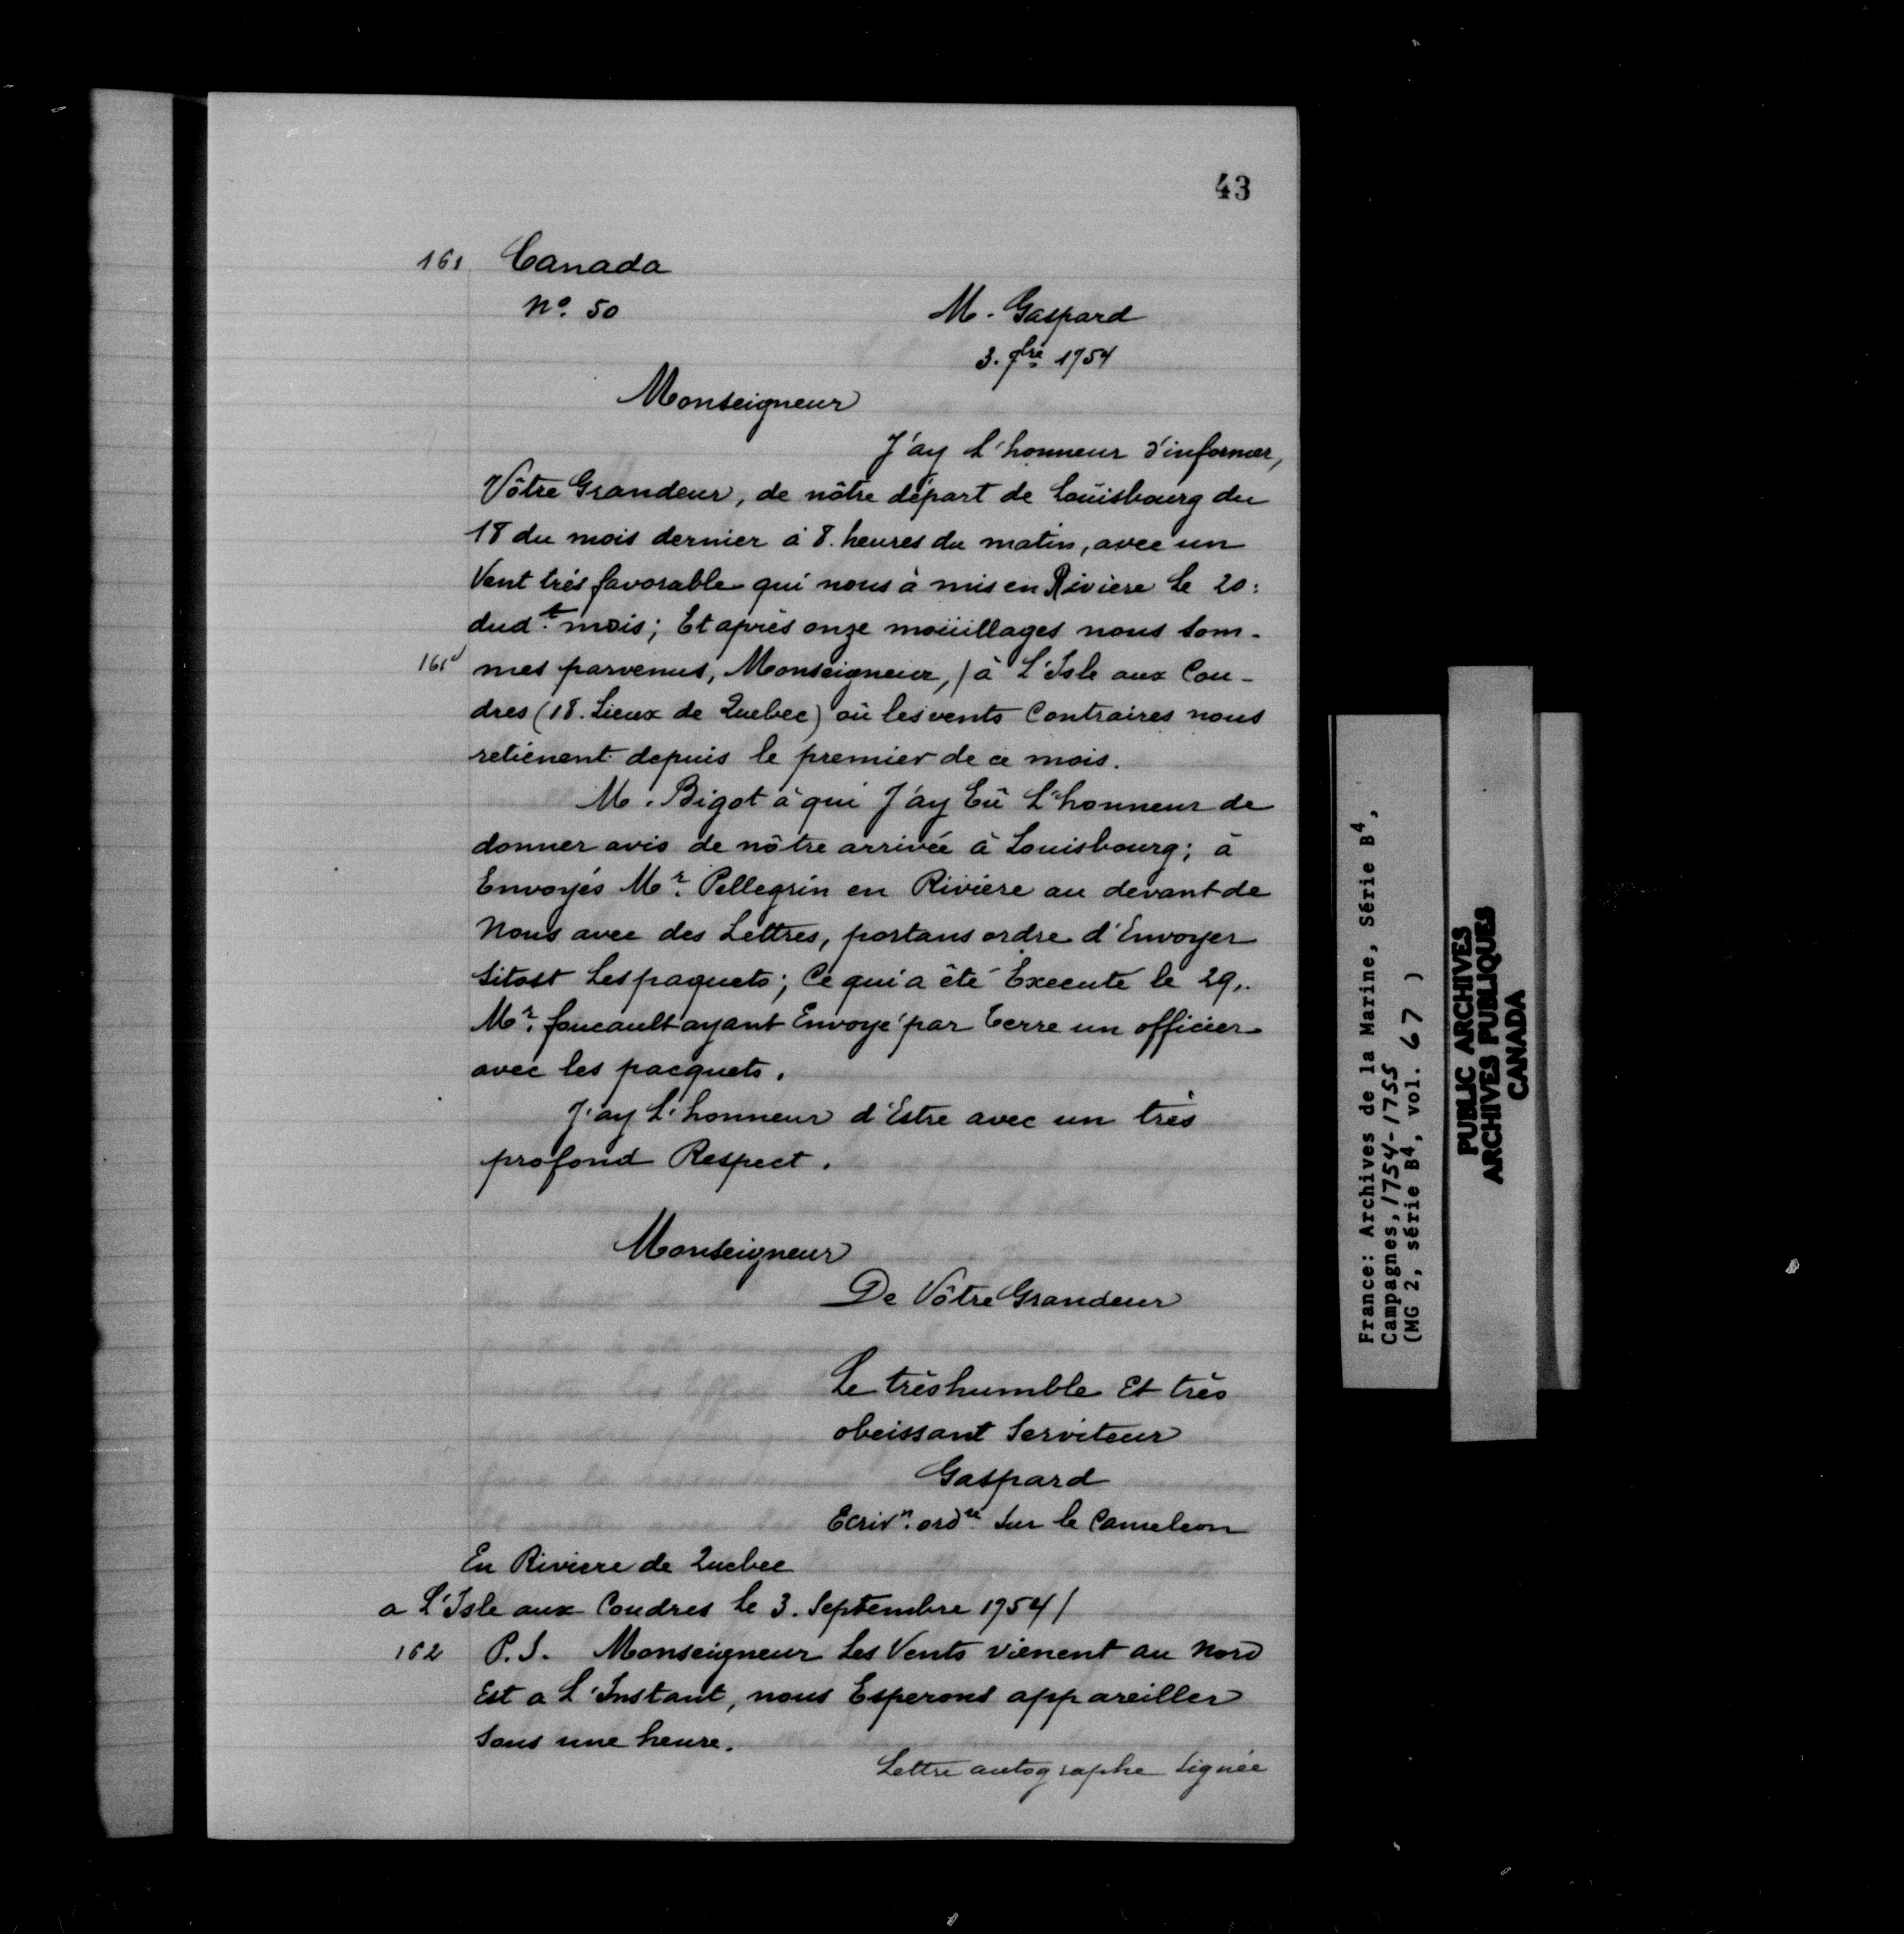 43
161 Canada
Nº. 50
M. Gaspard
3. 7bre 1754
Monseigneur
J'ay L'honneur d'informer,
Vôtre Grandeur, de nôtre départ de Loüisbourg du
18 du mois dernier à 8. heures du matin, avec un
Vent trés favorable qui nous à mis en Riviere Le 20:
dud.t mois; Et aprés onze moüillages nous som-
161v mes parvenus, Monseigneur, / à L'Isle aux Cou-
dres (18. Lieux de Quebec) où les vents Contraires nous
retiénent depuis le premier de ce mois.
M. Bigot à qui J'ay Eû L'honneur de
donner avis de nôtre arrivée à Louisbourg; à
Envoyés Mr. Pellegrin en Riviére au devant de
Nous avec des Lettres, portans ordre d'Envoyer
sitost Les paquets; Ce qui a êté Executé le 29..
Mr. foucault ayant Envoyé par terre un officier
avec les pacquets.
J'ay L'honneur d'Estre avec un trés
profond Respect.
Monseigneur
De Vôtre Grandeur
Le trés humble Et trés
obeissant Serviteur
Gaspard
Ecrivn. ordre sur le Cameleon
En Riviere de Quebec
a L'Isle aux Coudres Le 3. Septembre 1754 /
162 P.S. Monseigneur Les Vents viénent au Nord
Est a L'Instant, nous Esperons appareiller
sous une heure.
Lettre autographe signée
France: Archives de la Marine, Série B4,
Campagnes, 1754-1755
(MG 2, série B4, vol. 67 )
PUBLIC ARCHIVES
ARCHIVES PUBLIQUES
CANADA